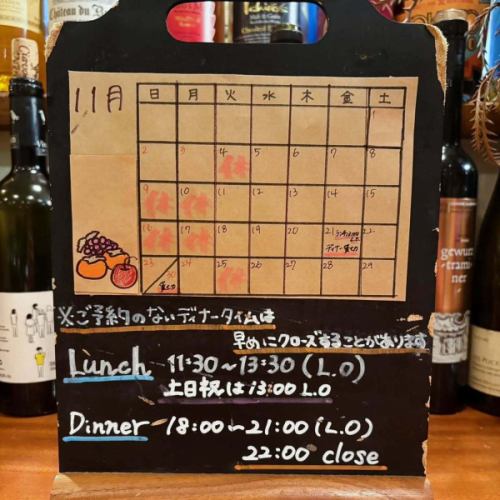 11月
日 月 火 水 木 金 土
1
2 3 4 休 5 6 7 8
9 休 10 休 11 12 13 14 15
16 休 17 休 18 19 20 21 ディナー貸切 22
23 30 貸切 24 25 休 26 27 28 29
※ご予約のないディナータイムは
早めにクローズすることがあります
Lunch 11:30~13:30(L.O)
土日祝は13:00 L.O
Dinner 18:00~21:00(L.O)
22:00 close
gewurz
tramı
ner